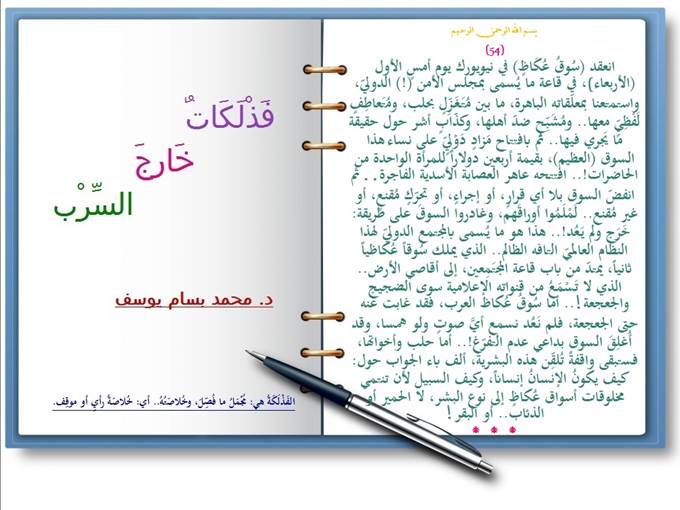 بسم الله الرحمن الرحيم
(54)
انعقد (سُوقُ عُكَاظٍ) في نيويورك يوم أمسِ الأول
(الأربعاء)، في قاعة ما يُسمى بمجلس الأمن (!) الدوليّ،
واستمتعنا بمعلّقاته الباهرة، ما بين مُتَغَزِّلٍ بحلب، ومُتَعاطِفٍ
لَفْظيٍّ معها.. ومُشَبِّحٍ ضدَ أهلها، وكذّابٍ أشر حول حقيقة
ما يَجري فيها.. ثم بافتتاح مَزادٍ دَوْليٍّ على نساء هذا
السوق (العظيم)، بقيمة أربعين دولاراً للمرأة الواحدة من
الحاضرات!.. افتتحه عاهر العصابة الأسدية الفاجرة.. ثم
انفضّ السوق بلا أي قرارٍ، أو إجراءٍ، أو تحرّكٍ مُقنعٍ، أو
غير مُقنع.. لَمْلَمُوا أوراقَهم، وغادروا السوق على طريقة:
خَرَجَ ولم يَعُد!.. هذا هو ما يُسمى بالمجتمع الدوليّ لهذا
النظام العالميّ التافه الظالم.. الذي يملك سُوقاً عُكاظياً
ثانياً، يمتدّ من باب قاعة المُجتَمعين، إلى أقاصي الأرض..
الذي لا تَسْمَعُ من قنواته الإعلامية سوى الضجيج
والجعجعة!.. أما سُوقُ عُكاظ العرب، فقد غابت عنه
حتى الجعجعة، فلم نَعُد نسمع أيّ صوتٍ ولو همسا، وقد
أُغلِقَ السوق بداعي عدم التفرّغ!.. أما حلب وأخواتها،
فستبقى واقفةً تُلقِّن هذه البشرية، ألف باء الجواب حول:
كيف يكونُ الإنسانُ إنساناً، وكيف السبيل لأن تنتمي
مخلوقات أسواق عُكاظٍ إلى نوع البشر، لا الحمير أو
الذئاب.. أو البقر!
* * *
فَذْلَكَاتٌ
خَارِجَ
السِّرْب
د. محمد بسام يوسف
الفَذْلَكَةُ هي: مُجْمَلُ ما فُصِّلَ، وخُلاصَتُهُ.. أي: خُلاصَةُ رأيٍ أو موقِف.